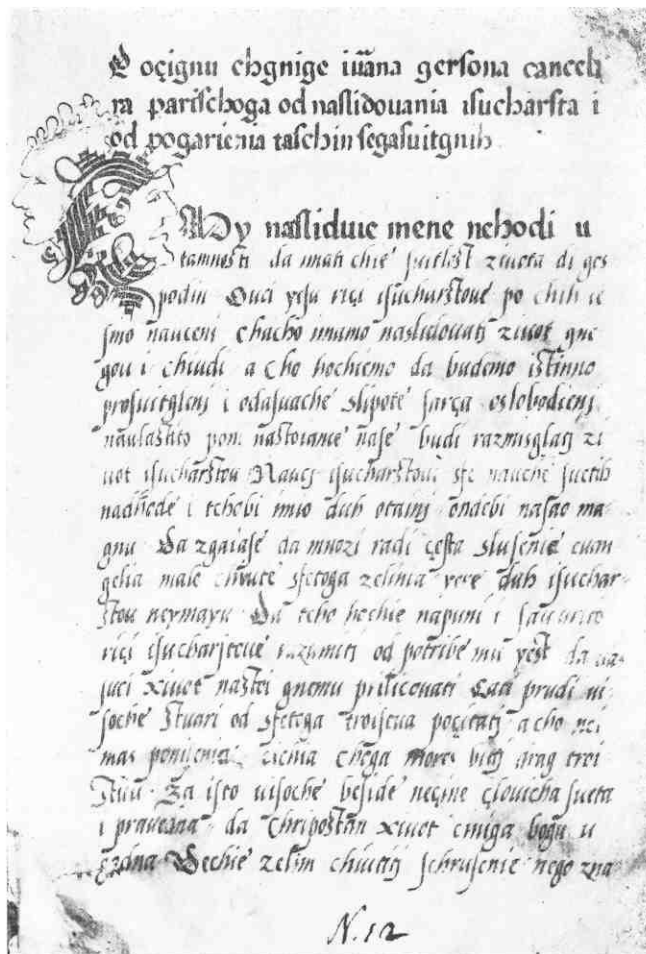 Poçignu chgnige iuãna gersona cancelı
ra parischoga od naslidouania isucharsta i
od pogarienia taschin segasuitgnih
Ady nasliduie mene nehodi u
tamnosti da imati chie suitlost ziuota di gos
podin Ouci yesu riçi isucharstoue po chih ie
smo nauceni chacho imamo naslidouatj ziuot gne
gou i chiudi acho hochiemo da budemo istinno
prosuitglenj i odasuache slipote sarça oslobodienj
naulastito pom nastoiance nase budi razmisglatj zi
uot isucharstou Naucj isucharstoui sfe nauche suetih
nadhode i tchobi imio duh otainj ondebi nasao ma
gnu Da zgaiase da mnozi radi çesta slusenie euan
gelia male chiute sfetoga zelinia yere duh isuchar
stou neymayu Da tcho hochie napuni i
riçi isucharstoue razumiti od potribe mu yest da uas
suci xiuot nastoi gnemu prilicouati Çati prudi ui
soche stuari od sfetoga troistua poçitatj acho nei
mas poniienia cichia choga mores bitj drag troi
stuu Za isto uisoche beside neçine çlouicha sueta
i prauedna da chripostan xiuot ciniga bogu u
godna Vechie zelim chiutitj schrusenie nego zna
N. 12